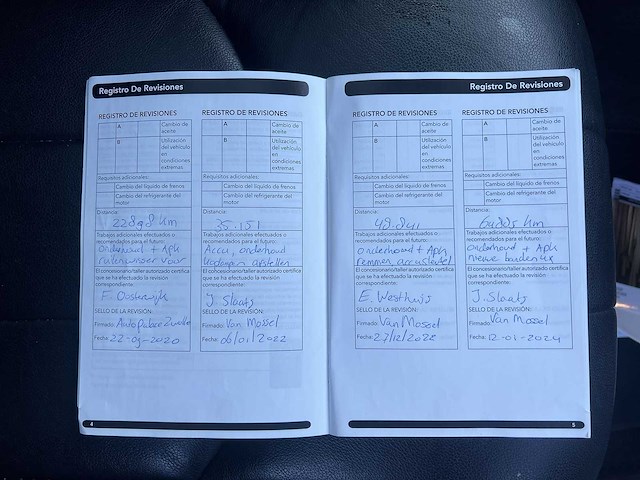 Registro De Revisiones
REGISTRO DE REVISIONES
A
Cambio de
aceite
B
Utilización
del vehículo
en
condiciones
extremas
Requisitos adicionales:
Cambio del líquido de frenos
Cambio del refrigerante del
motor
Distancia:
km
Trabajos adicionales efectuados o
recomendados para el futuro:
onderhoud + Apk
ruitenwisser voor
El concesionario/taller autorizado certifica
que se ha efectuado la revisión
correspondiente:
F. Oosterwijk
SELLO DE LA REVISIÓN:
Firmado: Auto Palace Zwolle
Fecha: 22-09-2020
4
REGISTRO DE REVISIONES
A
Cambio de
aceite
B
Utilización
del vehículo
en
condiciones
extremas
Requisitos adicionales:
Cambio del líquido de frenos
Cambio del refrigerante del
motor
Distancia:
35.151
Trabajos adicionales efectuados o
recomendados para el futuro:
Accu, onderhoud
afstellen
El concesionario/taller autorizado certifica
que se ha efectuado la revisión
correspondiente:
J. Slaats
SELLO DE LA REVISIÓN:
Firmado: Van Mossel
Fecha: 06/01/2022
Registro De Revisiones
REGISTRO DE REVISIONES
A
Cambio de
aceite
B
Utilización
del vehículo
en
condiciones
extremas
Requisitos adicionales:
Cambio del líquido de frenos
Cambio del refrigerante del
motor
Distancia:
48.841
Trabajos adicionales efectuados o
recomendados para el futuro:
onderhoud + Apk
remmen,
El concesionario/taller autorizado certifica
que se ha efectuado la revisión
correspondiente:
E. Westhuis
SELLO DE LA REVISIÓN:
Firmado: Van Mossel
Fecha: 27/12/2022
REGISTRO DE REVISIONES
A
Cambio de
aceite
B
Utilización
del vehículo
en
condiciones
extremas
Requisitos adicionales:
Cambio del líquido de frenos
Cambio del refrigerante del
motor
Distancia:
km
Trabajos adicionales efectuados o
recomendados para el futuro:
Onderhoud + Apk
nieuwe banden
El concesionario/taller autorizado certifica
que se ha efectuado la revisión
correspondiente:
J. Slaats
SELLO DE LA REVISIÓN:
Firmado: Van Mossel
Fecha: 12-01-2024
5